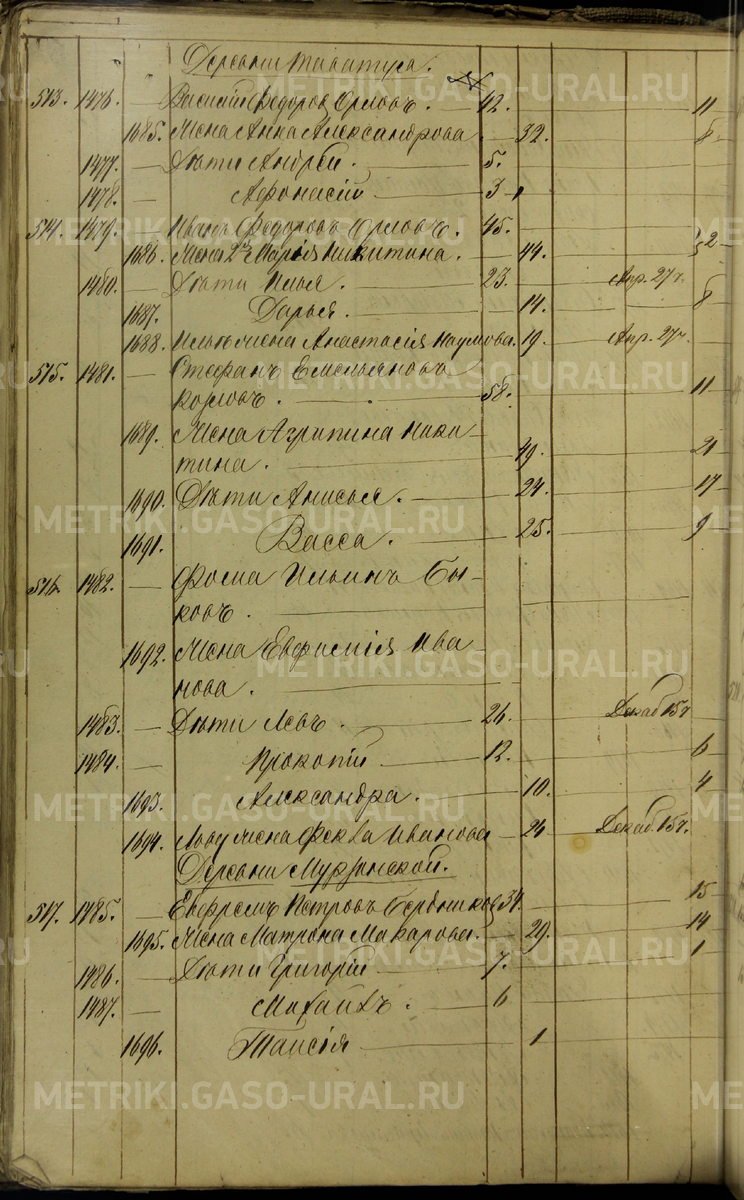 Деревни Таватуя.
513. 1476. — Василий Федоров Орловъ. — 42. — 11
1685. Жена Анна Александрова — 32. — 8
1477. — Дѣти Андрей. — 5.
1478. — Афонасій — 3
514. 1479. — Иванъ Федоровъ Орловъ. — 45. — 2
1686. Жена 2я Марья Никитина. — 44. — 5
1480. — Дѣти Илья. — 23. — Апр. 27ч.
1687. Дарья. — 14. — 8
1688. Ильи жена Анастасія Наумова. 19. — Апр. 27ч
515. 1481. — Стефанъ Емельяновъ
Козловъ. — 58. — 11
1689. Жена Агрипина Ники-
тина. — 49. — 21
1690. Дѣти Анисья. — 24. — 17
1691. Васса. — 25. — 9
516. 1482. — Фома Ильинъ Бы-
ковъ.
1692. Жена Евфимія Ива-
нова.
1483. — Дѣти Левъ. — 26. — Декаб 15ч
1484. — Прокопій — 12. — 6
1693. Александра. — 10. — 4
1694. Льву жена Фекла Иванова — 24 — Декаб. 15ч.
Деревни Мурзинской.
517. 1485. — Евфремъ Петровъ Бердников 34. — 15
1695. Жена Матрона Макарова. — 29. — 14
1486. — Дѣти Григорій — 7. — 1
1487. — Михаилъ. — 6
1696. Таисія — 1
METRIKI.GASO-URAL.RU